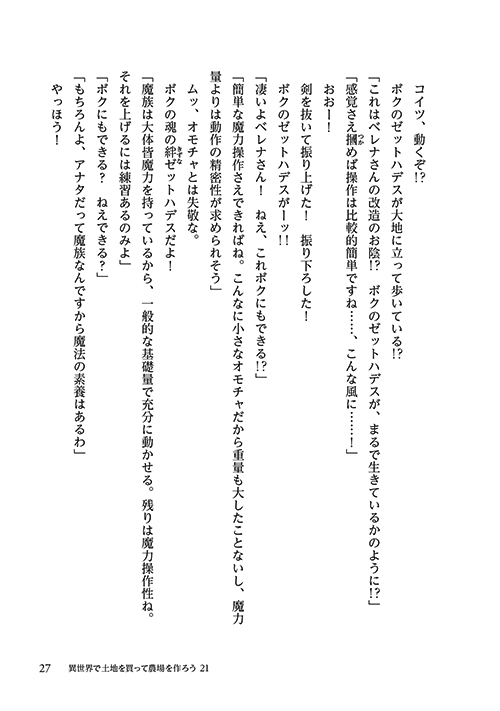 コイツ、動くぞ!?
ボクのゼットハデスが大地に立って歩いている!?
「これはベレナさんの改造のお陰!? ボクのゼットハデスが、まるで生きているかのように!?」
「感覚さえ摑めば操作は比較的簡単ですね……、こんな風に……！」
おおー！
剣を抜いて振り上げた！ 振り下ろした！
ボクのゼットハデスがーッ!!
「凄いよベレナさん！ ねえ、これボクにもできる!?」
「簡単な魔力操作さえできればね。こんなに小さなオモチャだから重量も大したことないし、魔力
量よりは動作の精密性が求められそう」
ムッ、オモチャとは失敬な。
ボクの魂の絆ゼットハデスだよ！
「魔族は大体皆魔力を持っているから、一般的な基礎量で充分に動かせる。残りは魔力操作性ね。
それを上げるには練習あるのみよ」
「ボクにもできる？ ねえできる？」
「もちろんよ、アナタだって魔族なんですから魔法の素養はあるわ」
やっほう！
27 異世界で土地を買って農場を作ろう 21